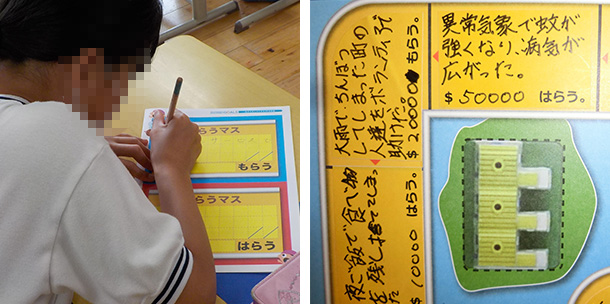 もらうマス
もらう
はらうマス
はらう
異常気象で蚊が
強くなり、病気が
広がった。
$50000 はらう。
大雨で、ちんぼつ
してしまった町の
人達をボランティアで
助けた。
$20000 もらう。
夜ご飯で食べ物
を残し捨ててしまっ
た
$10000 はらう。